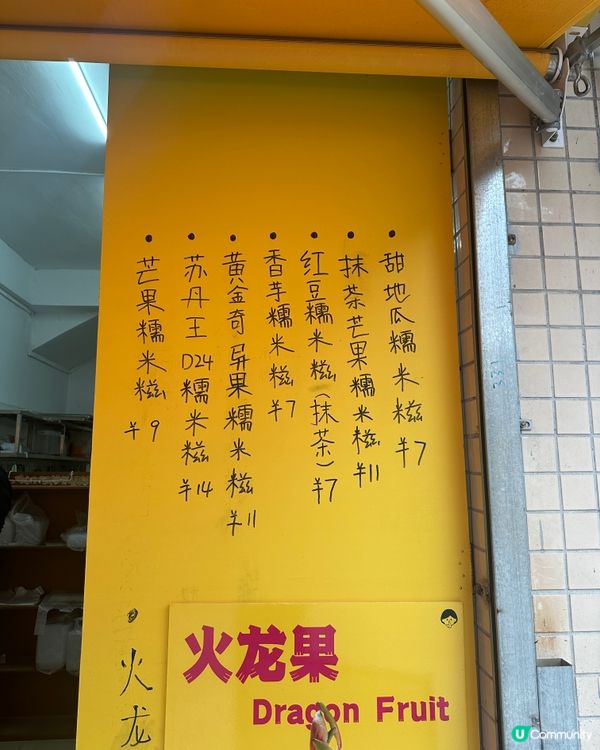 • 甜地瓜糯米糍 ¥7
• 抹茶芒果糯米糍 ¥11
• 红豆糯米糍(抹茶) ¥7
• 香芋糯米糍 ¥7
• 黄金奇异果糯米糍 ¥11
• 苏丹王D24糯米糍 ¥14
• 芒果糯米糍 ¥9
• 火龙
火龙果
Dragon Fruit
U Community